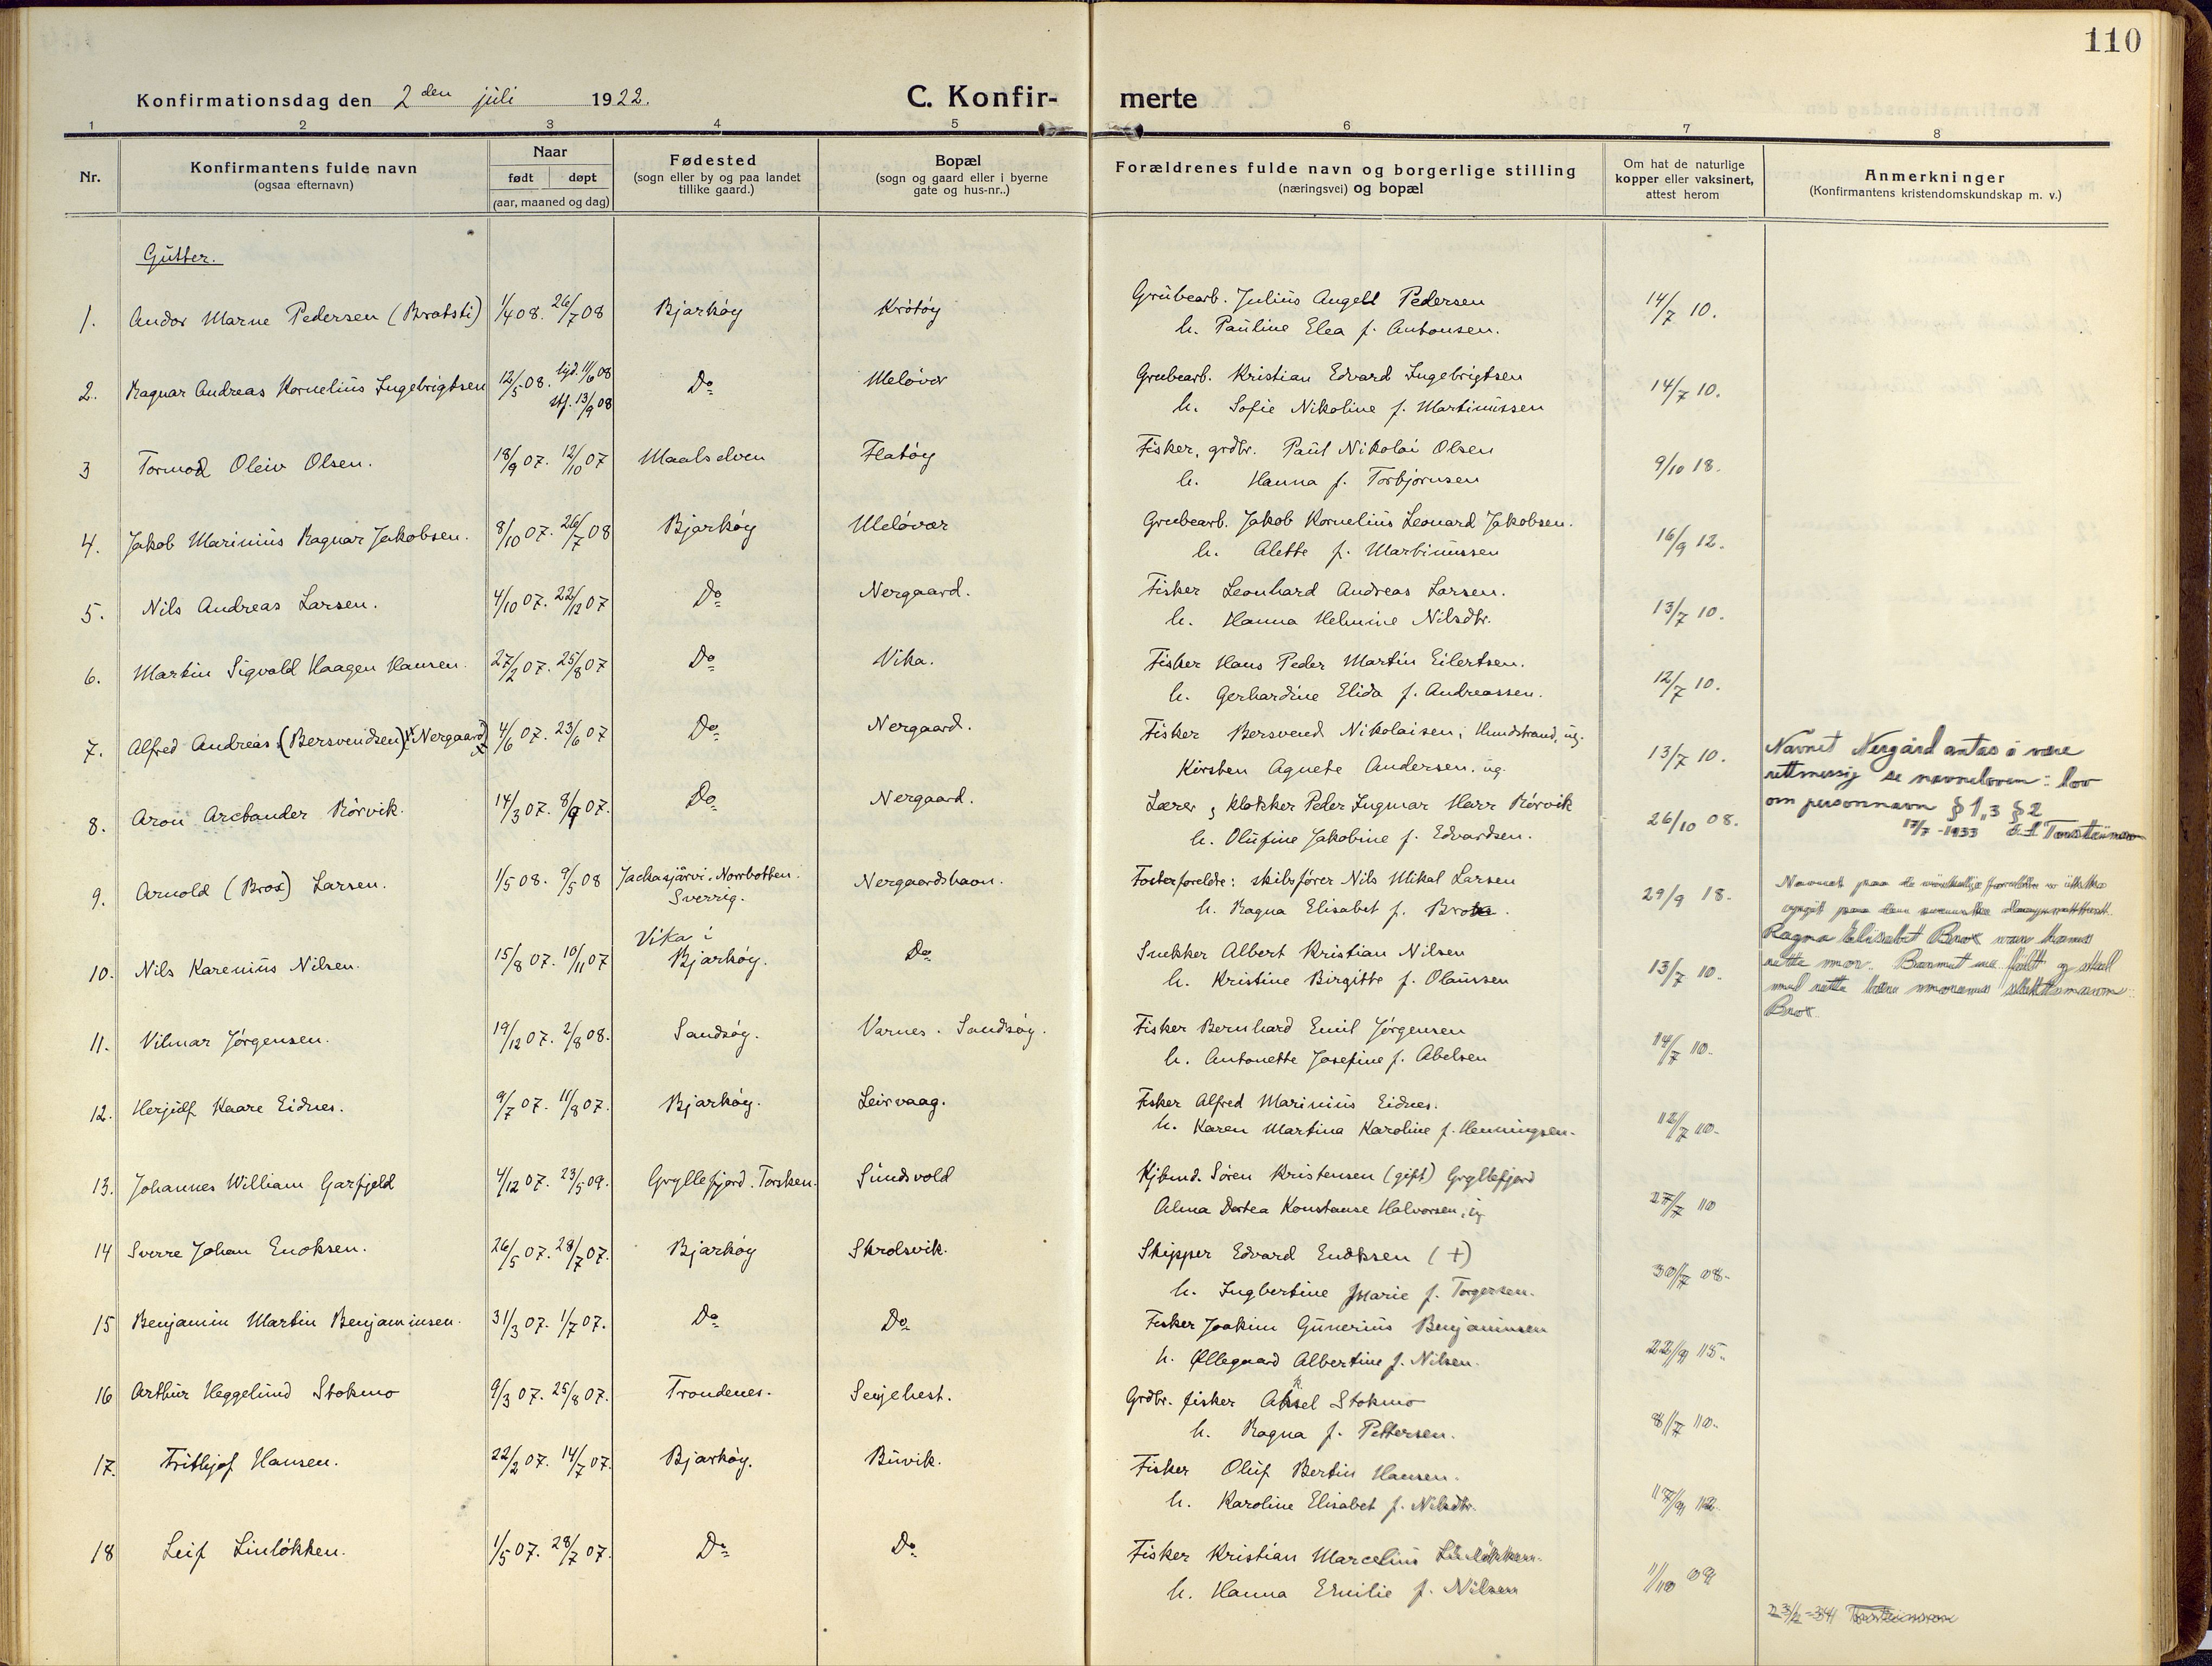 110
Konfirmationsdag den 2den juli 1922.
C. Konfir-
merte
1 2 3 4 5 6 7 8
Nr.
Konfirmantens fulde navn
(ogsaa efternavn)
Naar
født døpt
(aar, maaned og dag)
Fødested
(sogn eller by og paa landet
tillike gaard.)
Bopæl
(sogn og gaard eller i byerne
gate og hus-nr..)
Forældrenes fulde navn og borgerlige stilling
(næringsvei) og bopæl
Om hat de naturlige
kopper eller vaksinert,
attest herom
Anmerkninger
(Konfirmantens kristendomskundskap m. v.)
Gutter.
1. Andor Marne Pedersen (Bratsti) 1/4 08. 26/7 08 Bjarkøy Krøtøy Grubearb. Julius Angell Pedersen 14/7 10.
h. Pauline Elea f. Antonsen.
2. Ragnar Andreas Kornelius Ingebrigtsen 12/5 08. hjd. 11/6 08 Do Meløvær Grubearb. Kristian Edvard Ingebrigtsen 14/7 10.
stf. 13/9 08 h. Sofie Nikoline f. Martinussen
3 Tormod Oleiv Olsen. 18/9 07. 12/10 07 Maalselven Flatøy Fisker, grdbr. Paul Nikolai Olsen 9/10 18.
h. Hanna f. Torbjørnsen
4. Jakob Marinius Ragnar Jakobsen. 8/10 07. 26/7 08 Bjarkøy Meløvær Grubearb. Jakob Kornelius Leonard Jakobsen. 16/9 12.
h. Alette f. Martinussen
5. Nils Andreas Larsen. 4/10 07. 22/12 07 Do Nergaard. Fisker Leonhard Andreas Larsen. 13/7 10.
h. Hanna Helmine Nilsdtr.
6. Martin Sigvald Haagen Hansen. 27/2 07. 25/8 07 Do Vika. Fisker Hans Peder Martin Eilertsen. 12/7 10.
h. Gerhardine Elida f. Andreassen.
7. Alfred Andreas (Bersvendsen) (Nergaard) 4/6 07. 23/6 07 Do Nergaard. Fisker Bersvend Nikolaisen, Hundstrand, ug. 13/7 10.
Kirsten Agnete Andersen. ug.
Navnet Nergård antas å være
rettmessig se navneloven: lov
om personnavn § 1, 3 § 2
17/7 - 1933
8. Aron Arctander Rørvik. 14/3 07. 8/9 07. Do Nergaard. Lærer, klokker Peder Ingmar Harr Rørvik 26/10 08.
h. Olufine Jakobine f. Edvardsen.
9. Arnold (Brox) Larsen. 1/5 08. 9/5 08 Jackasjärvi. Norrbotten. Sverrig. Nergaardshavn. Fosterforeldre: skibsfører Nils Mikal Larsen 29/9 18.
h. Ragna Elisabet f. Brox.
Navnet paa de virkelige
Ragna Elisabet Brox var hans
rette mor. Barnet
Brox
10. Nils Karenius Nilsen. 15/8 07. 10/11 07 Vika i Bjarkøy. Do Snekker Albert Kristian Nilsen 13/7 10.
h. Kristine Birgitte f. Olaussen
11. Vilmar Jørgensen. 19/12 07. 2/8 08. Sandsøy. Varnes. Sandsøy. Fisker Bernhard Emil Jørgensen 14/7 10.
h. Antonette Josefine f. Abelsen
12. Herjulf Kaare Eidnes. 9/7 07. 11/8 07. Bjarkøy. Leirvaag. Fisker Alfred Marinius Eidnes. 12/7 10.
h. Karen Martina Karoline f. Henningsen.
13. Johannes William Garfjeld 4/12 07. 23/5 09. Gryllefjord. Torsken. Sundsvold Kjbmd. Søren Kristensen (gift) Gryllefjord 27/7 10
Alma Dortea Konstanse Halvorsen, ug
14 Sverre Johan Enoksen. 26/5 07. 28/7 07. Bjarkøy Skrolsvik. Skipper Edvard Enoksen (+) 30/7 08.
h. Ingbertine Marie f. Torgersen.
15 Benjamin Martin Benjaminsen. 31/3 07. 1/7 07. Do Do Fisker Joakim Gunerius Benjaminsen 22/9 15.
h. Øllegaard Albertine f. Nilsen.
16 Arthur Heggelund Stokmo 9/3 07. 25/8 07. Trondenes. Senjehest. Grdbr. fisker Aksel Stokmo 8/7 10.
h. Ragna f. Pettersen.
17. Frithjof Hansen. 22/2 07. 14/7 07. Bjarkøy. Buvik. Fisker Oluf Bertin Hansen. 17/9 12.
h. Karoline Elisabet f. Nilsdtr.
18 Leif Linløkken. 1/5 07. 28/7 07. Do Do Fisker Kristian Marcelius Linløkken. 1/10 09
h. Hanna Emilie f. Nilsen